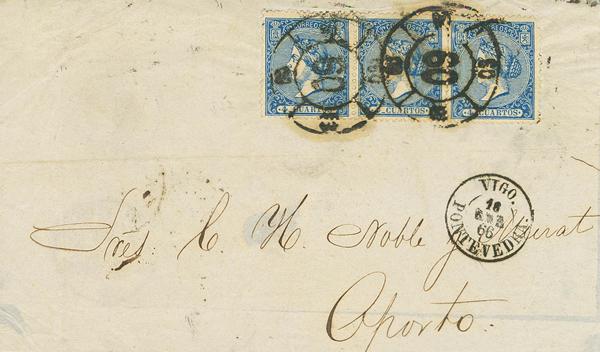 CORREOS CORREOS CORREOS
4 CUARTOS 4 CUARTOS 4 CUARTOS
60 60
VIGO.
16
ENE
66
PONTEVEDRA
Sres. C. H. Noble y Murat
Oporto.